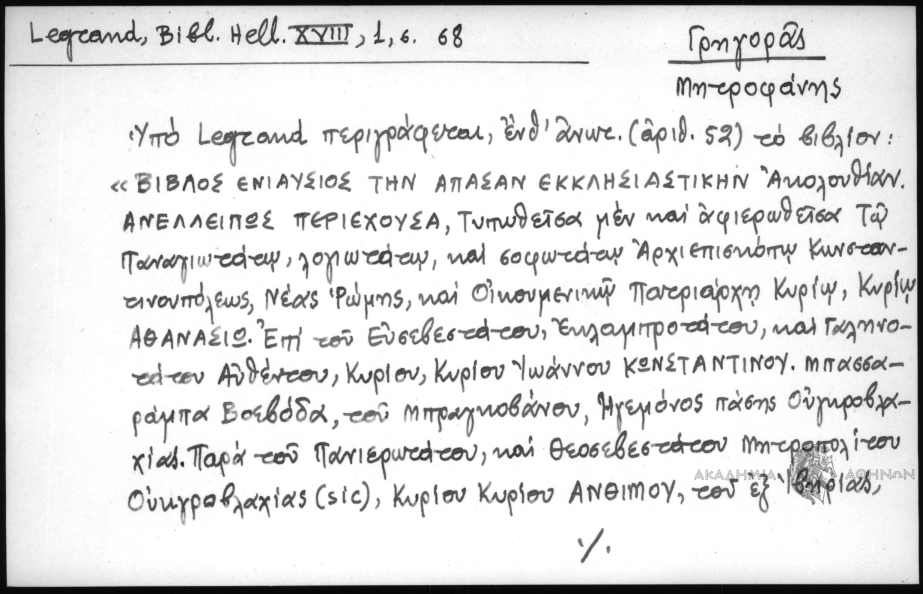 Legrand, Bibl. Hell. XVIII, 1, σ. 68
Γρηγορᾶς
Μητροφάνης
Ὑπό Legrand περιγράφεται, ἔνθ' ἄνωτ. (ἀριθ. 52) τό βιβλίον:
« ΒΙΒΛΟΣ ΕΝΙΑΥΣΙΟΣ ΤΗΝ ΑΠΑΣΑΝ ΕΚΚΛΗΣΙΑΣΤΙΚΗΝ Ἀκολουθίαν.
ΑΝΕΛΛΕΙΠΩΣ ΠΕΡΙΕΧΟΥΣΑ, Τυπωθεῖσα μέν καί ἀφιερωθεῖσα Τῷ
Παναγιωτάτῳ, λογιωτάτῳ, καί σοφωτάτῳ Ἀρχιεπισκόπῳ Κωνσταν-
τινουπόλεως, Νέας Ῥώμης, καί Οἰκουμενικῷ Πατριάρχῃ Κυρίῳ, Κυρίῳ
ΑΘΑΝΑΣΙΩ. Ἐπί τοῦ Εὐσεβεστάτου, Ἐκλαμπροτάτου, καί Γαληνο-
τάτου Αὐθέντου, Κυρίου, Κυρίου Ἰωάννου ΚΩΝΣΤΑΝΤΙΝΟΥ. Μπασσα-
ράμπα Βοεβόδα, τοῦ Μπραγκοβάνου, Ἡγεμόνος πάσης Οὐγκροβλα-
χίας. Παρά τοῦ Πανιερωτάτου, καί Θεοσεβεστάτου Μητροπολίτου
Οὐκγροβλαχίας (sic), Κυρίου Κυρίου ΑΝΘΙΜΟΥ, τοῦ ἐξ Ἰβηρίας,
ΑΚΑΔΗΜΙΑ ΑΘΗΝΩΝ
·/.